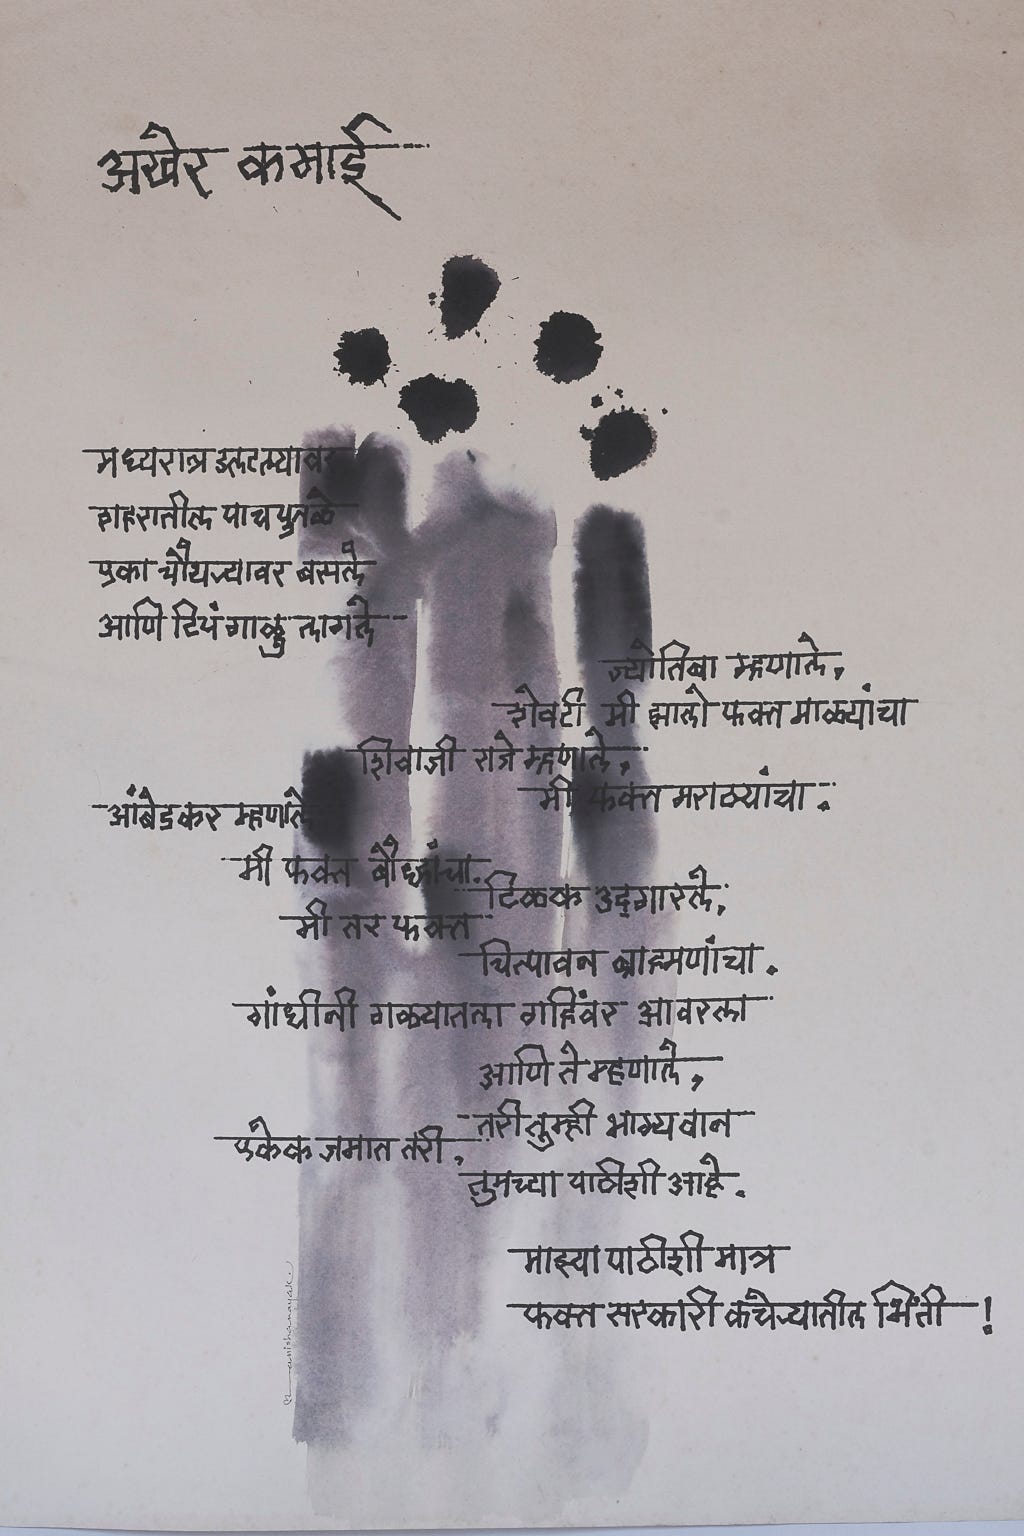 अखेर कमाई
मध्यरात्र उलटल्यावर
शहरातील पाच पुतळे
एका चौथऱ्यावर बसले
आणि टिपं गाळू लागले
ज्योतिबा म्हणाले,
शेवटी मी झालो फक्त माळ्यांचा
शिवाजी राजे म्हणाले,
मी फक्त मराठ्यांचा.
आंबेडकर म्हणाले
मी फक्त बौद्धांचा.
टिळक उद्‌गारले,
मी तर फक्त
चित्पावन ब्राह्मणांचा.
गांधींनी गळ्यातला गहिंवर आवरला
आणि ते म्हणाले,
तरी तुम्ही भाग्यवान
एकेक जमात तरी,
तुमच्या पाठीशी आहे.
माझ्या पाठीशी मात्र
फक्त सरकारी कचेऱ्यातील भिंती!
manishanayak.